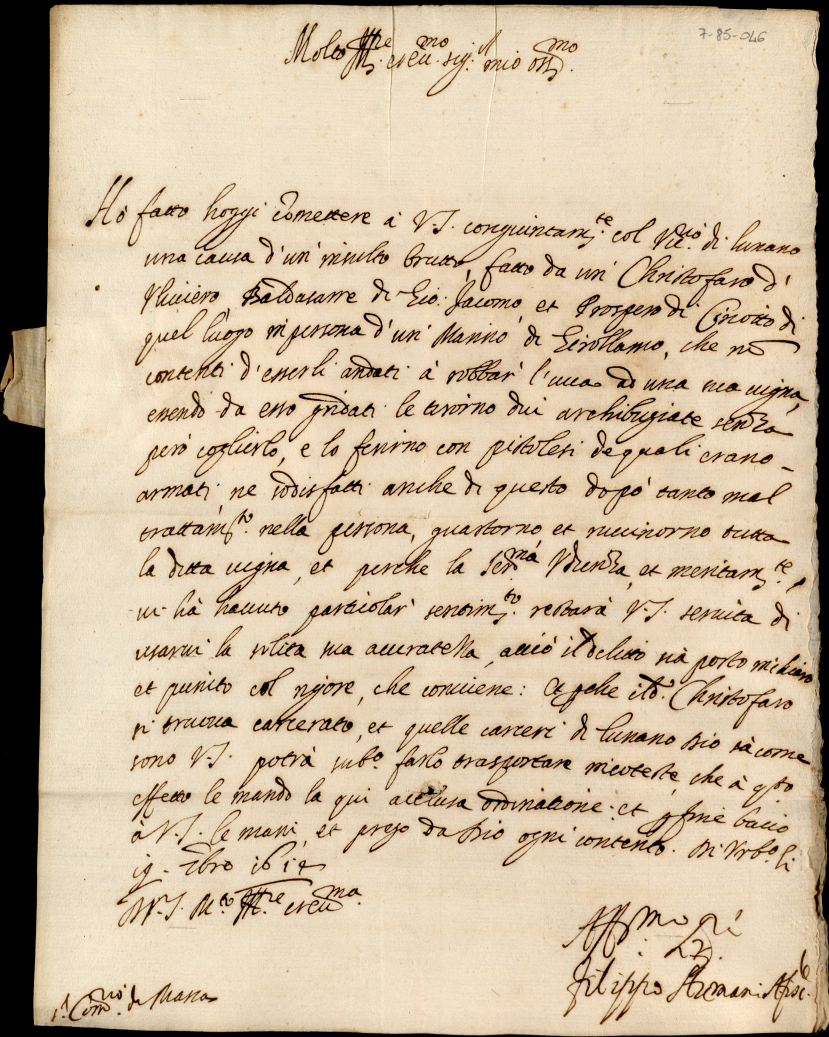 7-85-046
Molto Ill.re et ecc.mo sig.r mio oss.mo
Hò fatto hoggi comettere à V.S. congiuntam.te col Vic.rio di lunano
una causa d'un' insulto brutto, fatto da un' Christofaro d'
Uliviero Baldasarre di Gio. Jacomo et Prospero di di
quel luogo in persona d'un' Marino di Girollamo, che nõ
contenti d'esserli andati à robbar' l'uva ad una sua vigna,
essendo da esso gridati le tirorno dui archibugiate senza
però coglierlo, e lo ferirno con pistolesi de quali erano
armati ne sodisfatti anche di questo dopò tanto mal
trattam.to nella persona, guastorno et ruvinorno tutta
la ditta vigna, et perche la Ser.ma Udienza, et meritam.te,
vi hà havuto particolar' sentim.to restarà V.S. servita di
usarvi la solita sua accuratezza, acciò il delitto sia posto in chiaro
et punito col rigore, che conviene: Et p̱che il d.o Christofaro
si truova carcerato, et quelle carceri di lunano Dio sà come
sono V.S. potrà sub.o farlo trasportare in coteste, che à q̱sto
effetto le mando la qui acclusa ordinatione. et p̱ fine bacio
à V.S. le mani, et prego da Dio ogni contento. Di Urb.o li
19. 7bre 1614
D V.S. M.to Ill.re et ecc.ma
Aff.mo
Filippo
S.r Com.rio di Massa